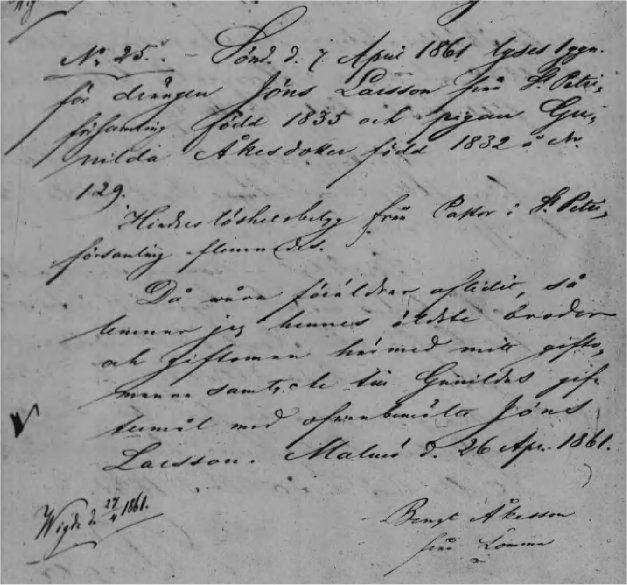 No 25. - Sönd. d. 7 April 1861 lyses 1 ggn.
för drängen Jöns Larsson från St. Petri
församling född 1835 och pigan Gu-
nilda Åkesdotter född 1832 å No.
129.
Hinderslöshetsbetyg från Pastor i St. Petri
församling
Då våra föräldrar aflidit, så
lemnar jag hennes äldste broder
och giftoman härmed mitt gifto-
manna samtycke till Gunildas gif-
termål med ofvanbemälte Jöns
Larsson. Malmö d. 26 Apr. 1861.
Wigde d. 27/4 1861.
Bengt Åkesson
från Lomma